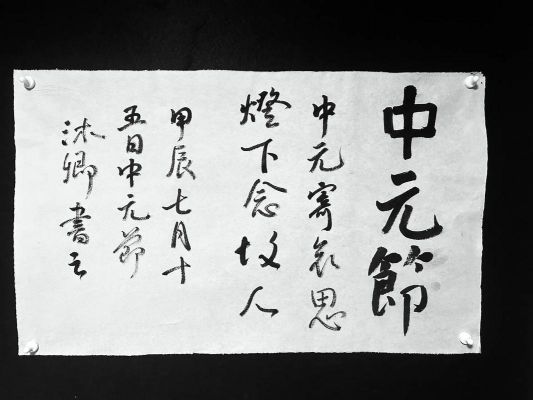 中元節
中元寄哀思
燈下念故人
甲辰七月十
五日中元節
沐卿書之